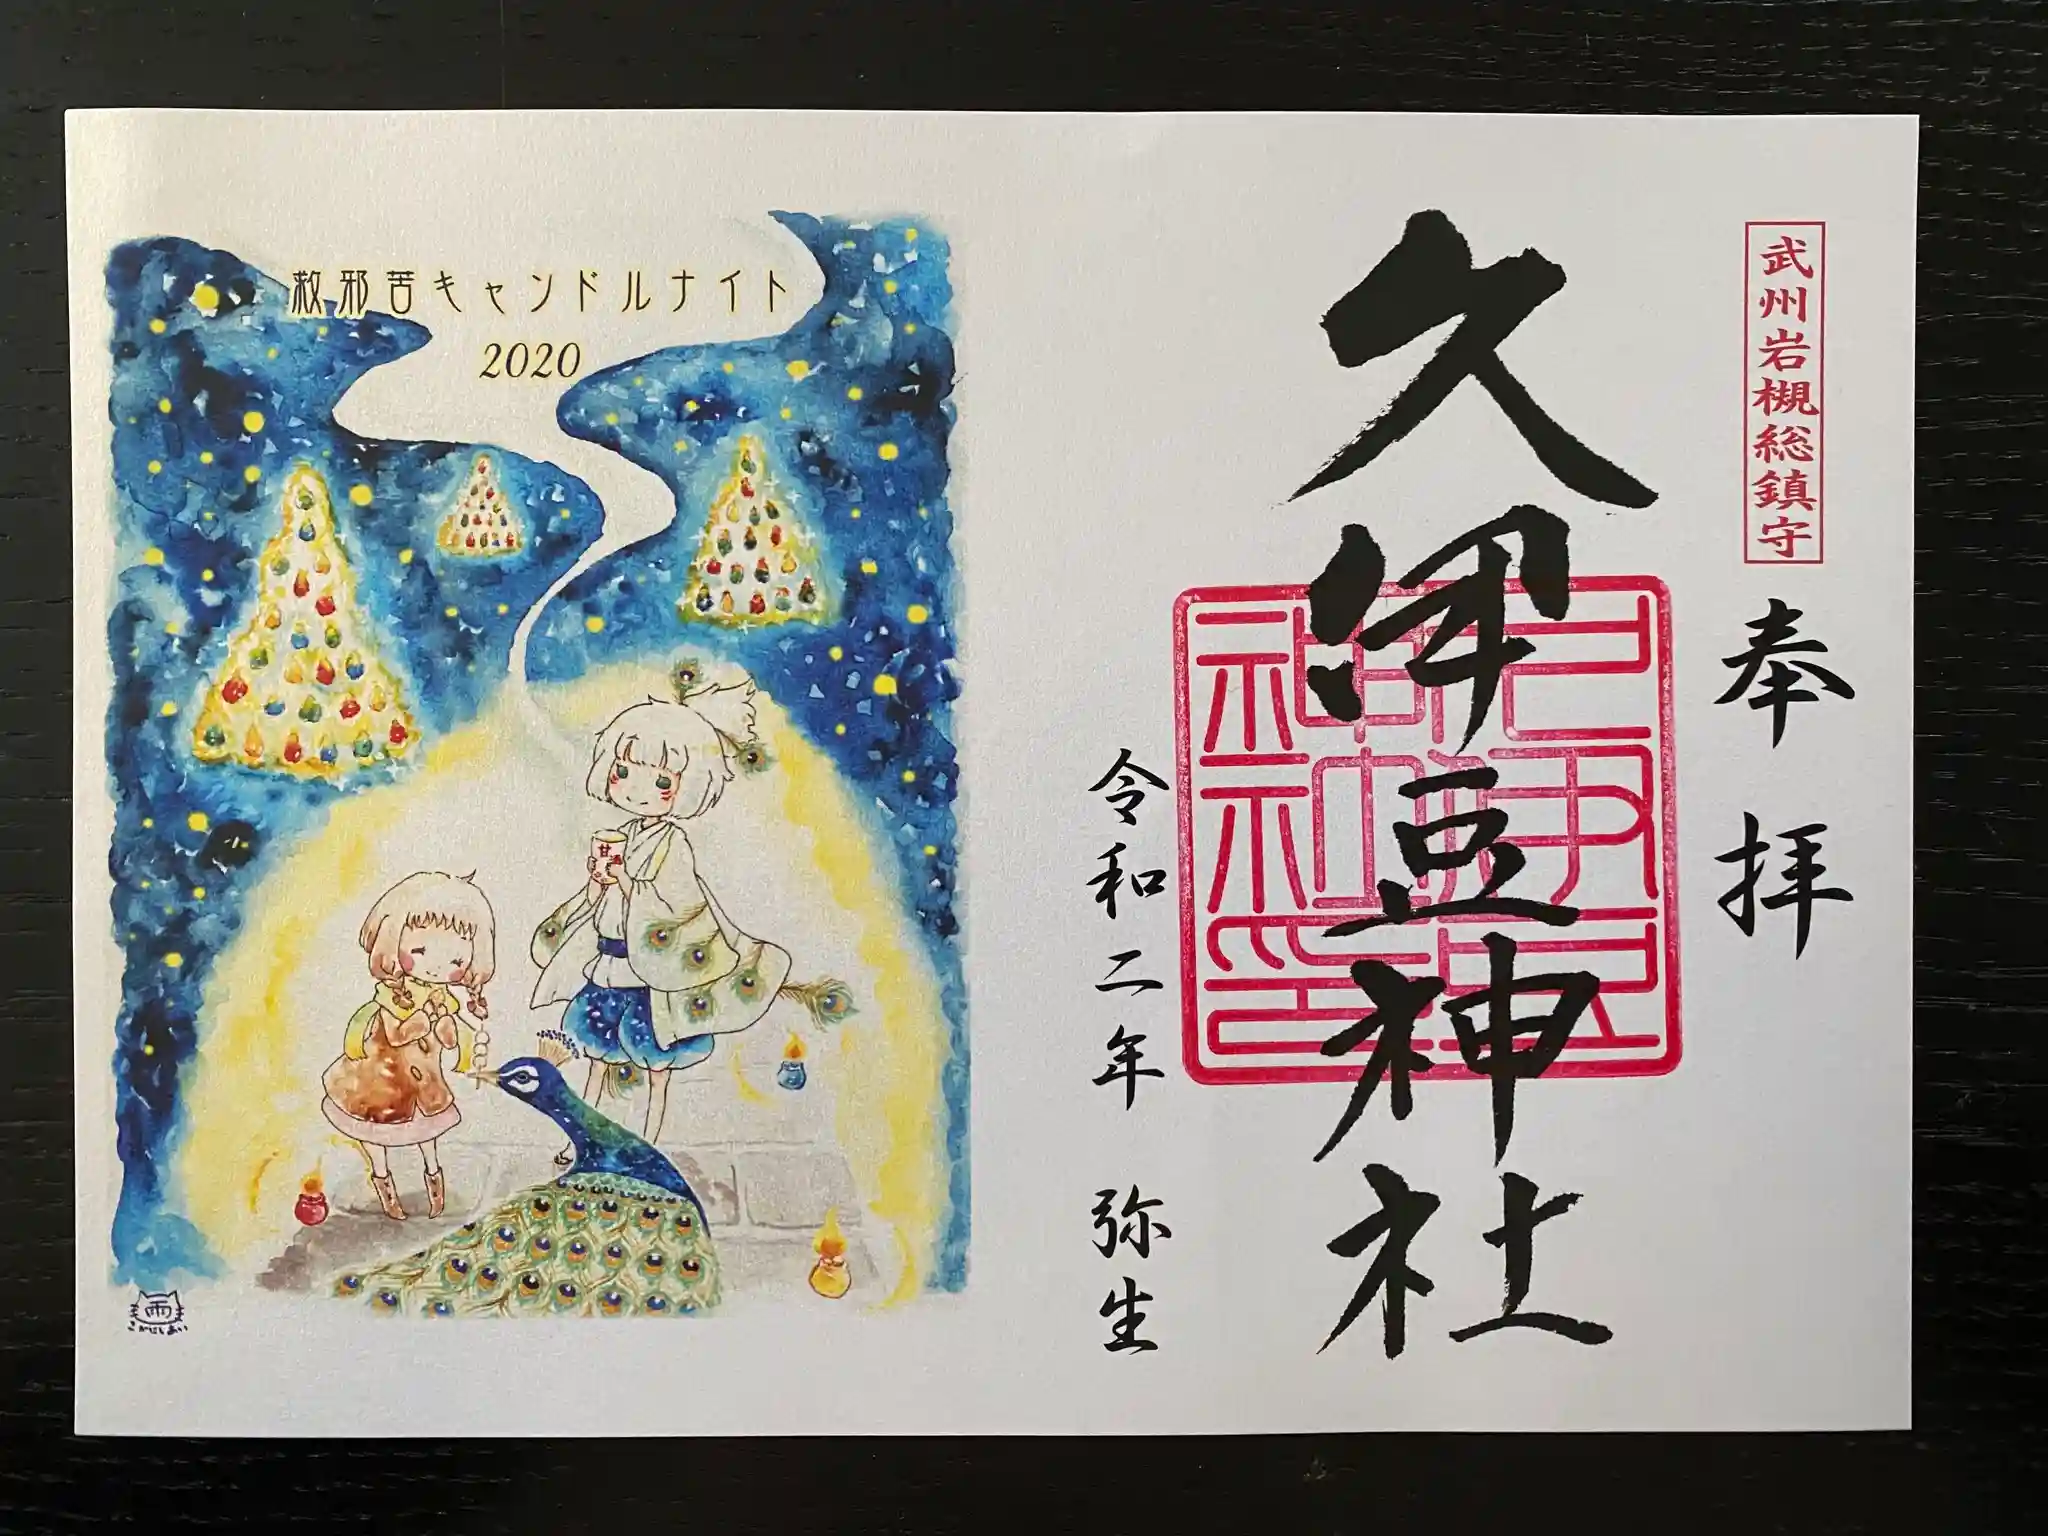 武州岩槻総鎮守
奉拝
久伊豆神社
令和二年 弥生
救邪苦キャンドルナイト
2020
甘酒
雨